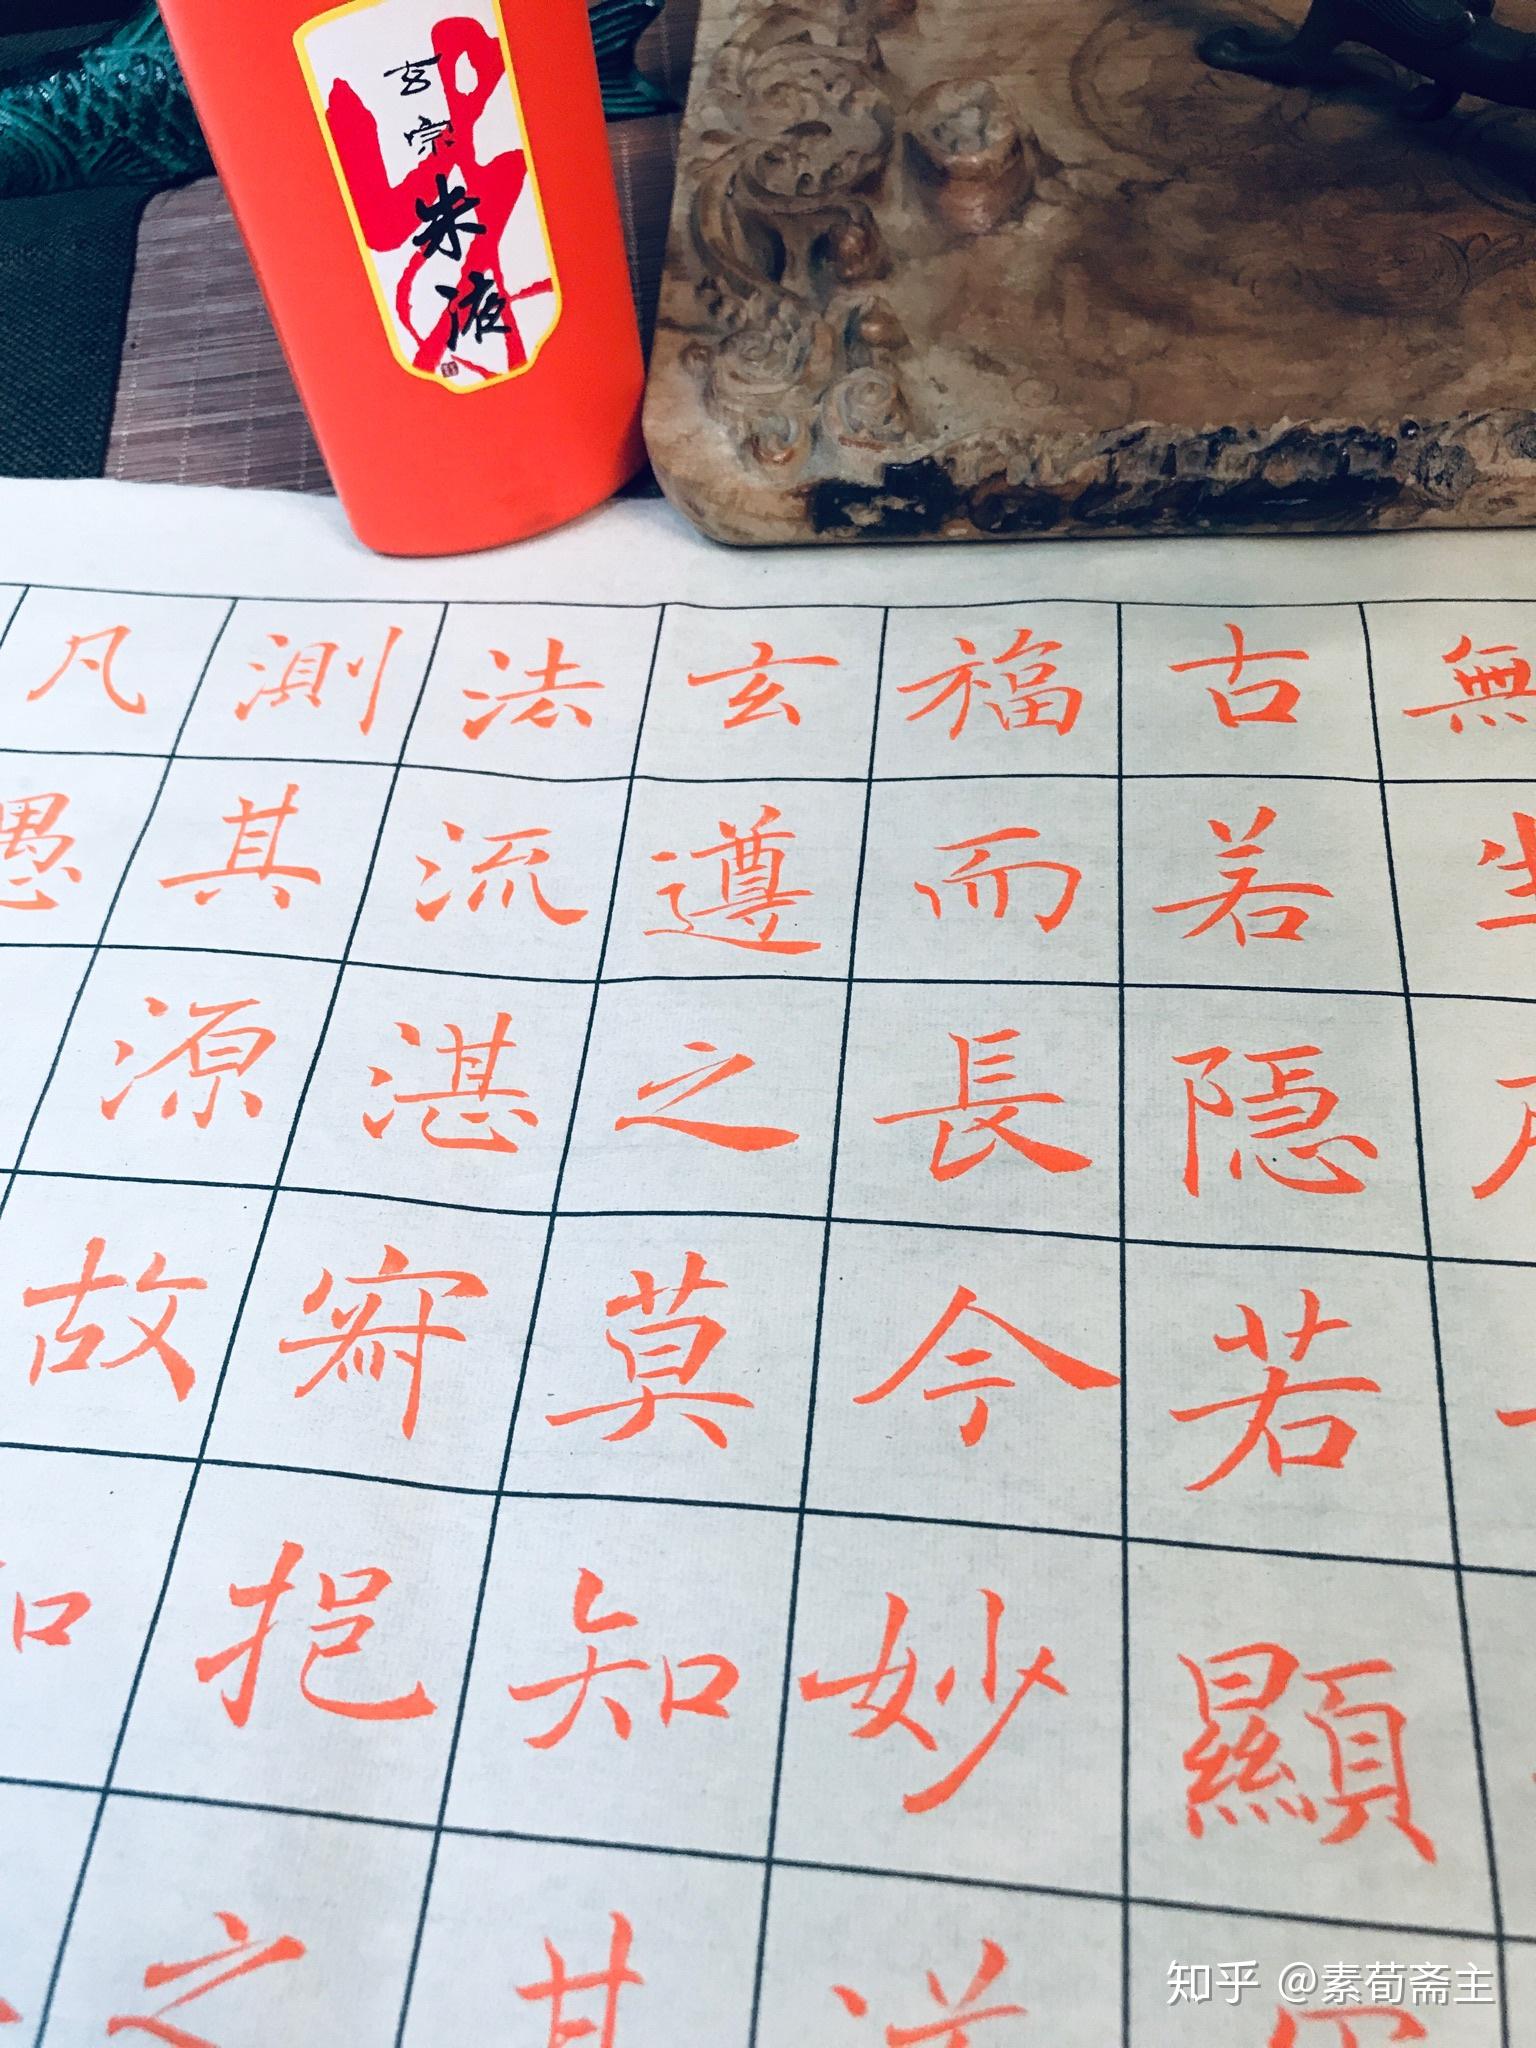 玄宗
朱液
無生
古若隱若顯
福而長今妙
玄遵之莫知其
法流湛寂挹之
測其源故
凡愚
知乎 @素荀斋主